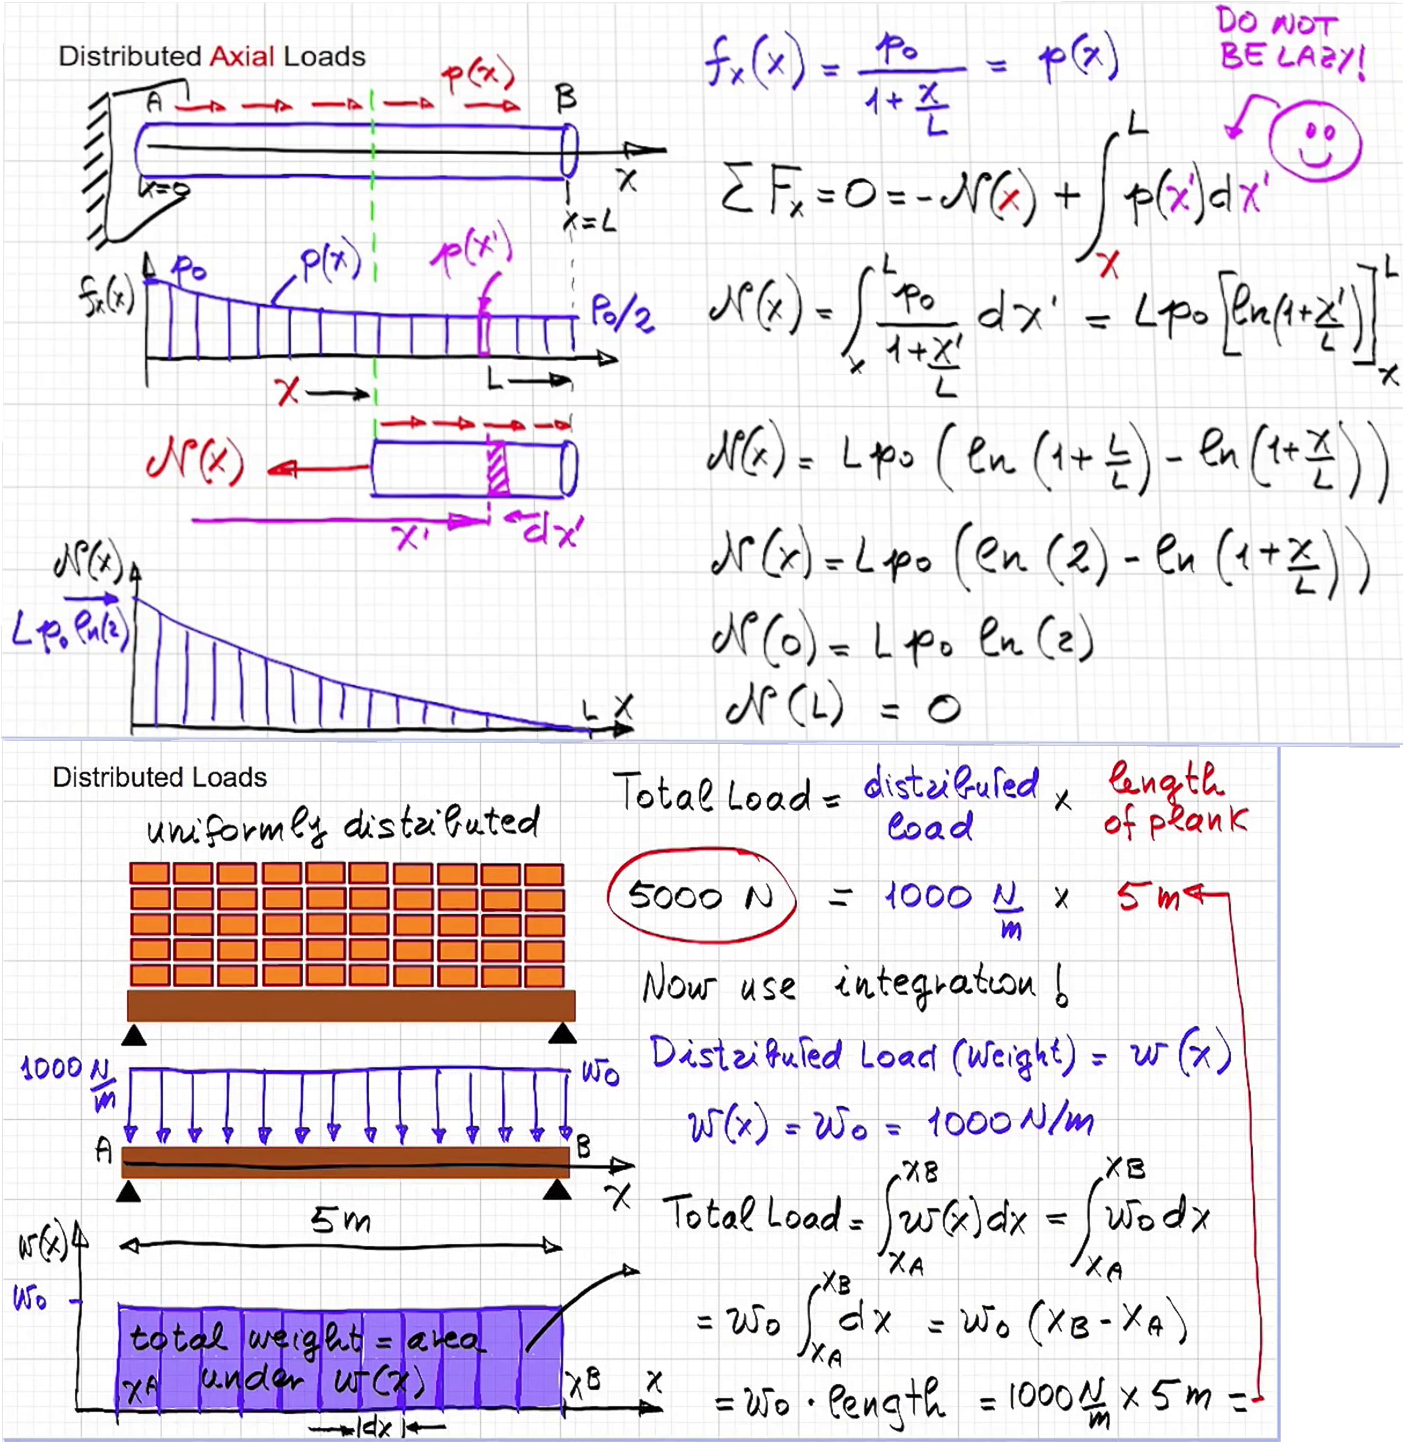 Distributed Axial Loads
p(x)
A
B
x=0
x
x=L
f_x(x)
p₀
p(x)
p(x')
p₀/2
x
L
N(x)
x'
dx'
N(x)
L p₀ ln(2)
L
x
f_x(x) = p₀ / (1 + x/L) = p(x)
DO NOT
BE LAZY!
∑ F_x = 0 = -N(x) + ∫_x^L p(x')dx'
N(x) = ∫_x^L p₀ / (1 + x'/L) dx' = L p₀ [ln(1 + x'/L)]_x^L
N(x) = L p₀ (ln (1 + L/L) - ln (1 + x/L))
N(x) = L p₀ (ln (2) - ln (1 + x/L))
N(0) = L p₀ ln (2)
N(L) = 0
Distributed Loads
uniformly distributed
1000 N/m
w₀
A
B
x
5m
w(x)
w₀
total weight = area
under w(x)
xA
xB
x
dx
Total Load = distributed load × length of plank
5000 N = 1000 N/m × 5 m
Now use integration!
Distributed Load (Weight) = w(x)
w(x) = w₀ = 1000 N/m
Total Load = ∫_xA^xB w(x)dx = ∫_xA^xB w₀ dx
= w₀ ∫_xA^xB dx = w₀ (xB - xA)
= w₀ · length = 1000 N/m × 5 m =